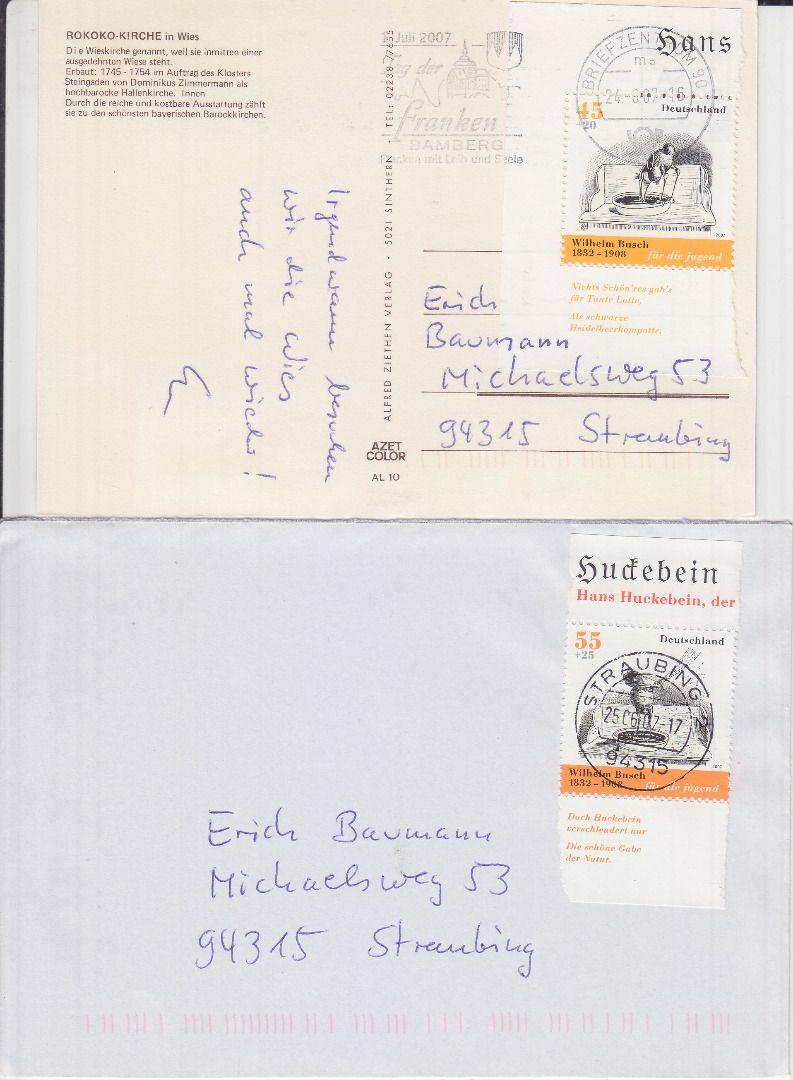 ROKOKO-KIRCHE in Wies
Die Wieskirche genannt, weil sie inmitten einer
ausgedehnten Wiese steht.
Erbaut: 1745 - 1754 im Auftrag des Klosters
Steingaden von Dominikus Zimmermann als
hochbarocke Hallenkirche. Innen
Durch die reiche und kostbare Ausstattung zählt
sie zu den schönsten bayerischen Barockkirchen.
Irgendwann besuchen
wir die Wies
auch mal wieder!
ALFRED ZIETHEN VERLAG · 5021 SINTHERN · TEL: 02238-
AZET
COLOR
AL 10
Juli 2007
der
Franken
BAMBERG
Franken mit Leib und Seele
BRIEFZENTRUM 90
ma
24.-6.07-16
Hans
45
+20
Deutschland
2007
Wilhelm Busch
1832 - 1908
für die jugend
Nichts Schön'res gab's
für Tante Lotte,
Als schwarze
Heidelbeerkompotte.
Erich
Baumann
Michaelsweg 53
94315 Straubing
Huckebein
Hans Huckebein, der
55
+25
Deutschland
STRAUBING 2
25.06.07-17
94315
Wilhelm Busch
1832 - 1908
für die jugend
Doch Huckebein
verschleudert nur
Die schöne Gabe
der Natur.
Erich Baumann
Michaelsweg 53
94315 Straubing